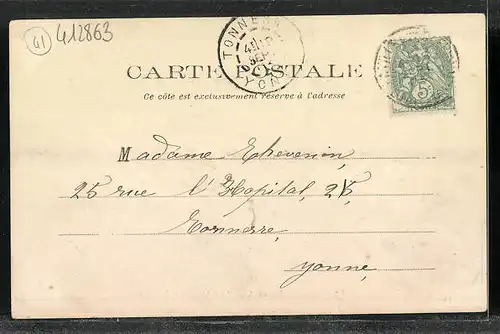 41
412863
TONNERRE
YONNE
CARTE POSTALE
Ce côte est exclusivement réservé à l'adresse
Madame Thevenin,
25 rue l'Hopital, 25,
Tonnerre,
Yonne,
5